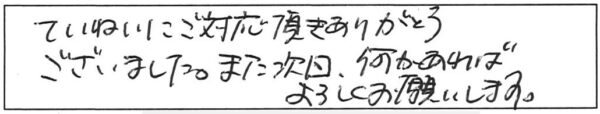 ていねいにご対応頂きありがとう
ございました。また次回、何かあれば
よろしくお願いします。